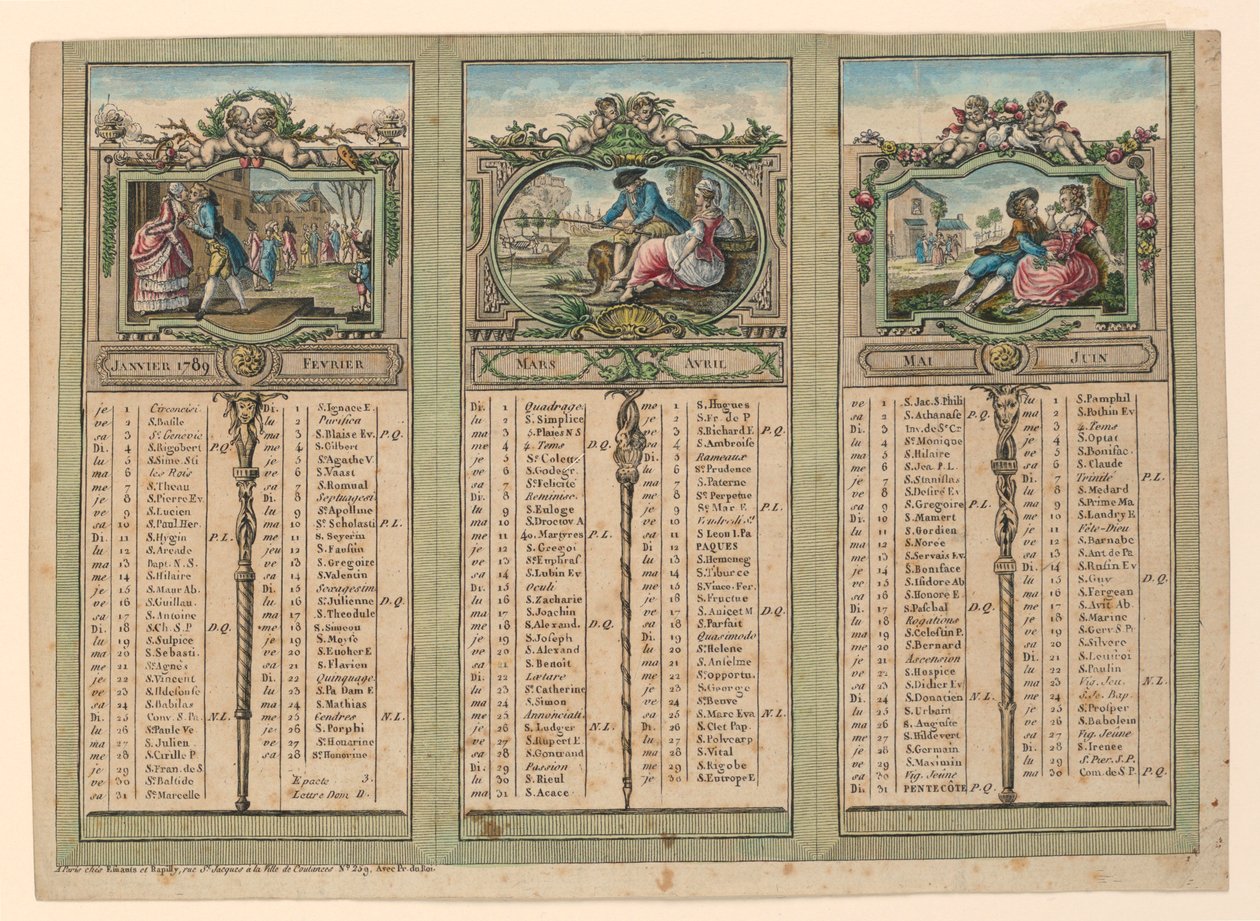 JANVIER 1789
je 1 Circoncisi
ve 2 S. Basile
sa 3 Ste Genevie
Di. 4 S. Rigobert P.Q.
lu 5 S. Sime. Sti
ma 6 les Rois
me 7 S. Theau
je 8 S. Pierre Ev.
ve 9 S. Lucien
sa 10 S. Paul Her.
Di. 11 S. Hygin P.L.
lu 12 S. Arcade
ma 13 Bapt. N.S.
me 14 S. Hilaire
je 15 S. Maur Ab.
ve 16 S. Guillau.
sa 17 S. Antoine
Di. 18 S. Ch. S.P. D.Q.
lu 19 S. Sulpice
ma 20 S. Sebasti.
me 21 Ste Agnès
je 22 S. Vincent
ve 23 S. Ildefonse
sa 24 S. Babilas
Di. 25 Conv. S. Pa. N.L.
lu 26 Ste Paule Ve
ma 27 S. Julien
me 28 S. Cirille P.
je 29 S. Fran. de S.
ve 30 Ste Batilde
sa 31 Ste Marcelle
FEVRIER
Di. 1 S. Ignace E.
lu 2 Purifica
ma 3 S. Blaise Ev. P.Q.
me 4 S. Gilbert
je 5 Ste Agathe V.
ve 6 S. Vaast
sa 7 S. Romual
Di. 8 Septuagesi
lu 9 Ste Apolline
ma 10 Ste Scholasti P.L.
me 11 S. Severin
jeu 12 S. Faustin
ve 13 S. Gregoire
sa 14 S. Valentin
Di. 15 Sexagesim
lu 16 Ste Julienne D.Q.
ma 17 S. Theodule
me 18 S. Simeon
je 19 S. Moyse
ve 20 S. Eucher E
sa 21 S. Flavien
Di. 22 Quinquage.
lu 23 S. Pa Dam E
ma 24 S. Mathias
me 25 Cendres N.L.
je 26 S. Porphi
ve 27 Ste Honorine
sa 28 Ste Honorine
Epacte 3.
Lettre Dom D.
MARS
Di. 1 Quadrage.
lu 2 S. Simplice
ma 3 5. Plaies N S
me 4 4. Tems D.Q.
je 5 Ste Colette
ve 6 S. Godegr.
sa 7 Ste Felicité
Di. 8 Reminise.
lu 9 S. Euloge
ma 10 S. Droctov. A
me 11 40. Martyres P.L.
je 12 S. Gregoi
ve 13 Ste Euphras
sa 14 S. Lubin Ev
Di. 15 Oculi
lu 16 S. Zacharie
ma 17 S. Joachin
me 18 S. Alexand. D.Q.
je 19 S. Joseph
ve 20 S. Alexand
sa 21 S. Benoît
Di. 22 Lœtare
lu 23 Ste Catherine
ma 24 S. Simon
me 25 Annonciati.
je 26 S. Ludger N.L.
ve 27 S. Rupert E
sa 28 S. Gontrand
Di. 29 Passion
lu 30 S. Rieul
ma 31 S. Acace
AVRIL
me 1 S. Hugues
je 2 S. Fr. de P
ve 3 S. Richard E P.Q.
sa 4 S. Ambroise
Di. 5 Rameaux
lu 6 Ste Prudence
ma 7 S. Paterne
me 8 Ste Perpetue
je 9 Ste Mar E P.L.
ve 10 Vendredi St
sa 11 S. Leon I. Pa
Di 12 PAQUES
lu 13 S. Hemeneg
ma 14 S. Tiburce
me 15 S. Vince. Fer.
je 16 S. Fructue
ve 17 S. Anicet M D.Q.
sa 18 S. Parfait
Di. 19 Quasimodo
lu 20 Ste Helene
ma 21 S. Anselme
me 22 Ste opportu.
je 23 S. George
ve 24 Ste Beuve
sa 25 S. Marc Eva N.L.
Di. 26 S. Clet Pap.
lu 27 S. Polycarp
ma 28 S. Vital
me 29 S. Rigobe
je 30 S. Eutrope E
MAI
ve 1 S. Jac. S. Phili
sa 2 S. Athanase P.Q.
Di. 3 Inv. de Ste Cr
lu 4 Ste Monique
ma 5 S. Hilaire
me 6 S. Jea P.L.
je 7 S. Stanislas
ve 8 S. Desiré Ev
sa 9 S. Gregoire P.L.
Di. 10 S. Mamert
lu 11 S. Gordien
ma 12 S. Nerée
me 13 S. Servais Ev.
je 14 S. Boniface
ve 15 S. Isidore Ab
sa 16 S. Honore E.
Di. 17 S. Paschal D.Q.
lu 18 Rogations
ma 19 S. Celestin P.
me 20 S. Bernard
je 21 Ascension
ve 22 S. Hospice
sa 23 S. Didier Ev
Di. 24 S. Donatien N.L.
lu 25 S. Urbain
ma 26 S. Auguste
me 27 S. Hildevert
je 28 S. Germain
ve 29 S. Maximin
sa 30 Vig. Jeune
Di. 31 PENTECÔTE P.Q.
JUIN
lu 1 S. Pamphil
ma 2 S. Pothin Ev
me 3 4. Tems
je 4 S. Optat
ve 5 S. Bonifac.
sa 6 S. Claude
Di. 7 Trinité P.L.
lu 8 S. Medard
ma 9 S. Prime Ma
me 10 S. Landry E
je 11 Fête-Dieu
ve 12 S. Barnabe
sa 13 S. Ant. de Pa
Di. 14 S. Rufin Ev
lu 15 S. Guy D.Q.
ma 16 S. Fergean
me 17 S. Avit Ab.
je 18 S. Marine
ve 19 S. Gerv. S. P.
sa 20 S. Silvere
Di. 21 S. Leufroi
lu 22 S. Paulin
ma 23 Vig. Jeu. N.L.
me 24 S. Je. Bap.
je 25 S. Prosper
ve 26 S. Babolein
sa 27 Vig. Jeune
Di. 28 S. Irenée
lu 29 S. Pier. S. P.
ma 30 Com. de S P. P.Q.
A Paris chés Esnauts et Rapilly, rue St Jacques à la Ville de Coutances No 259, Avec Pr. du Roi.